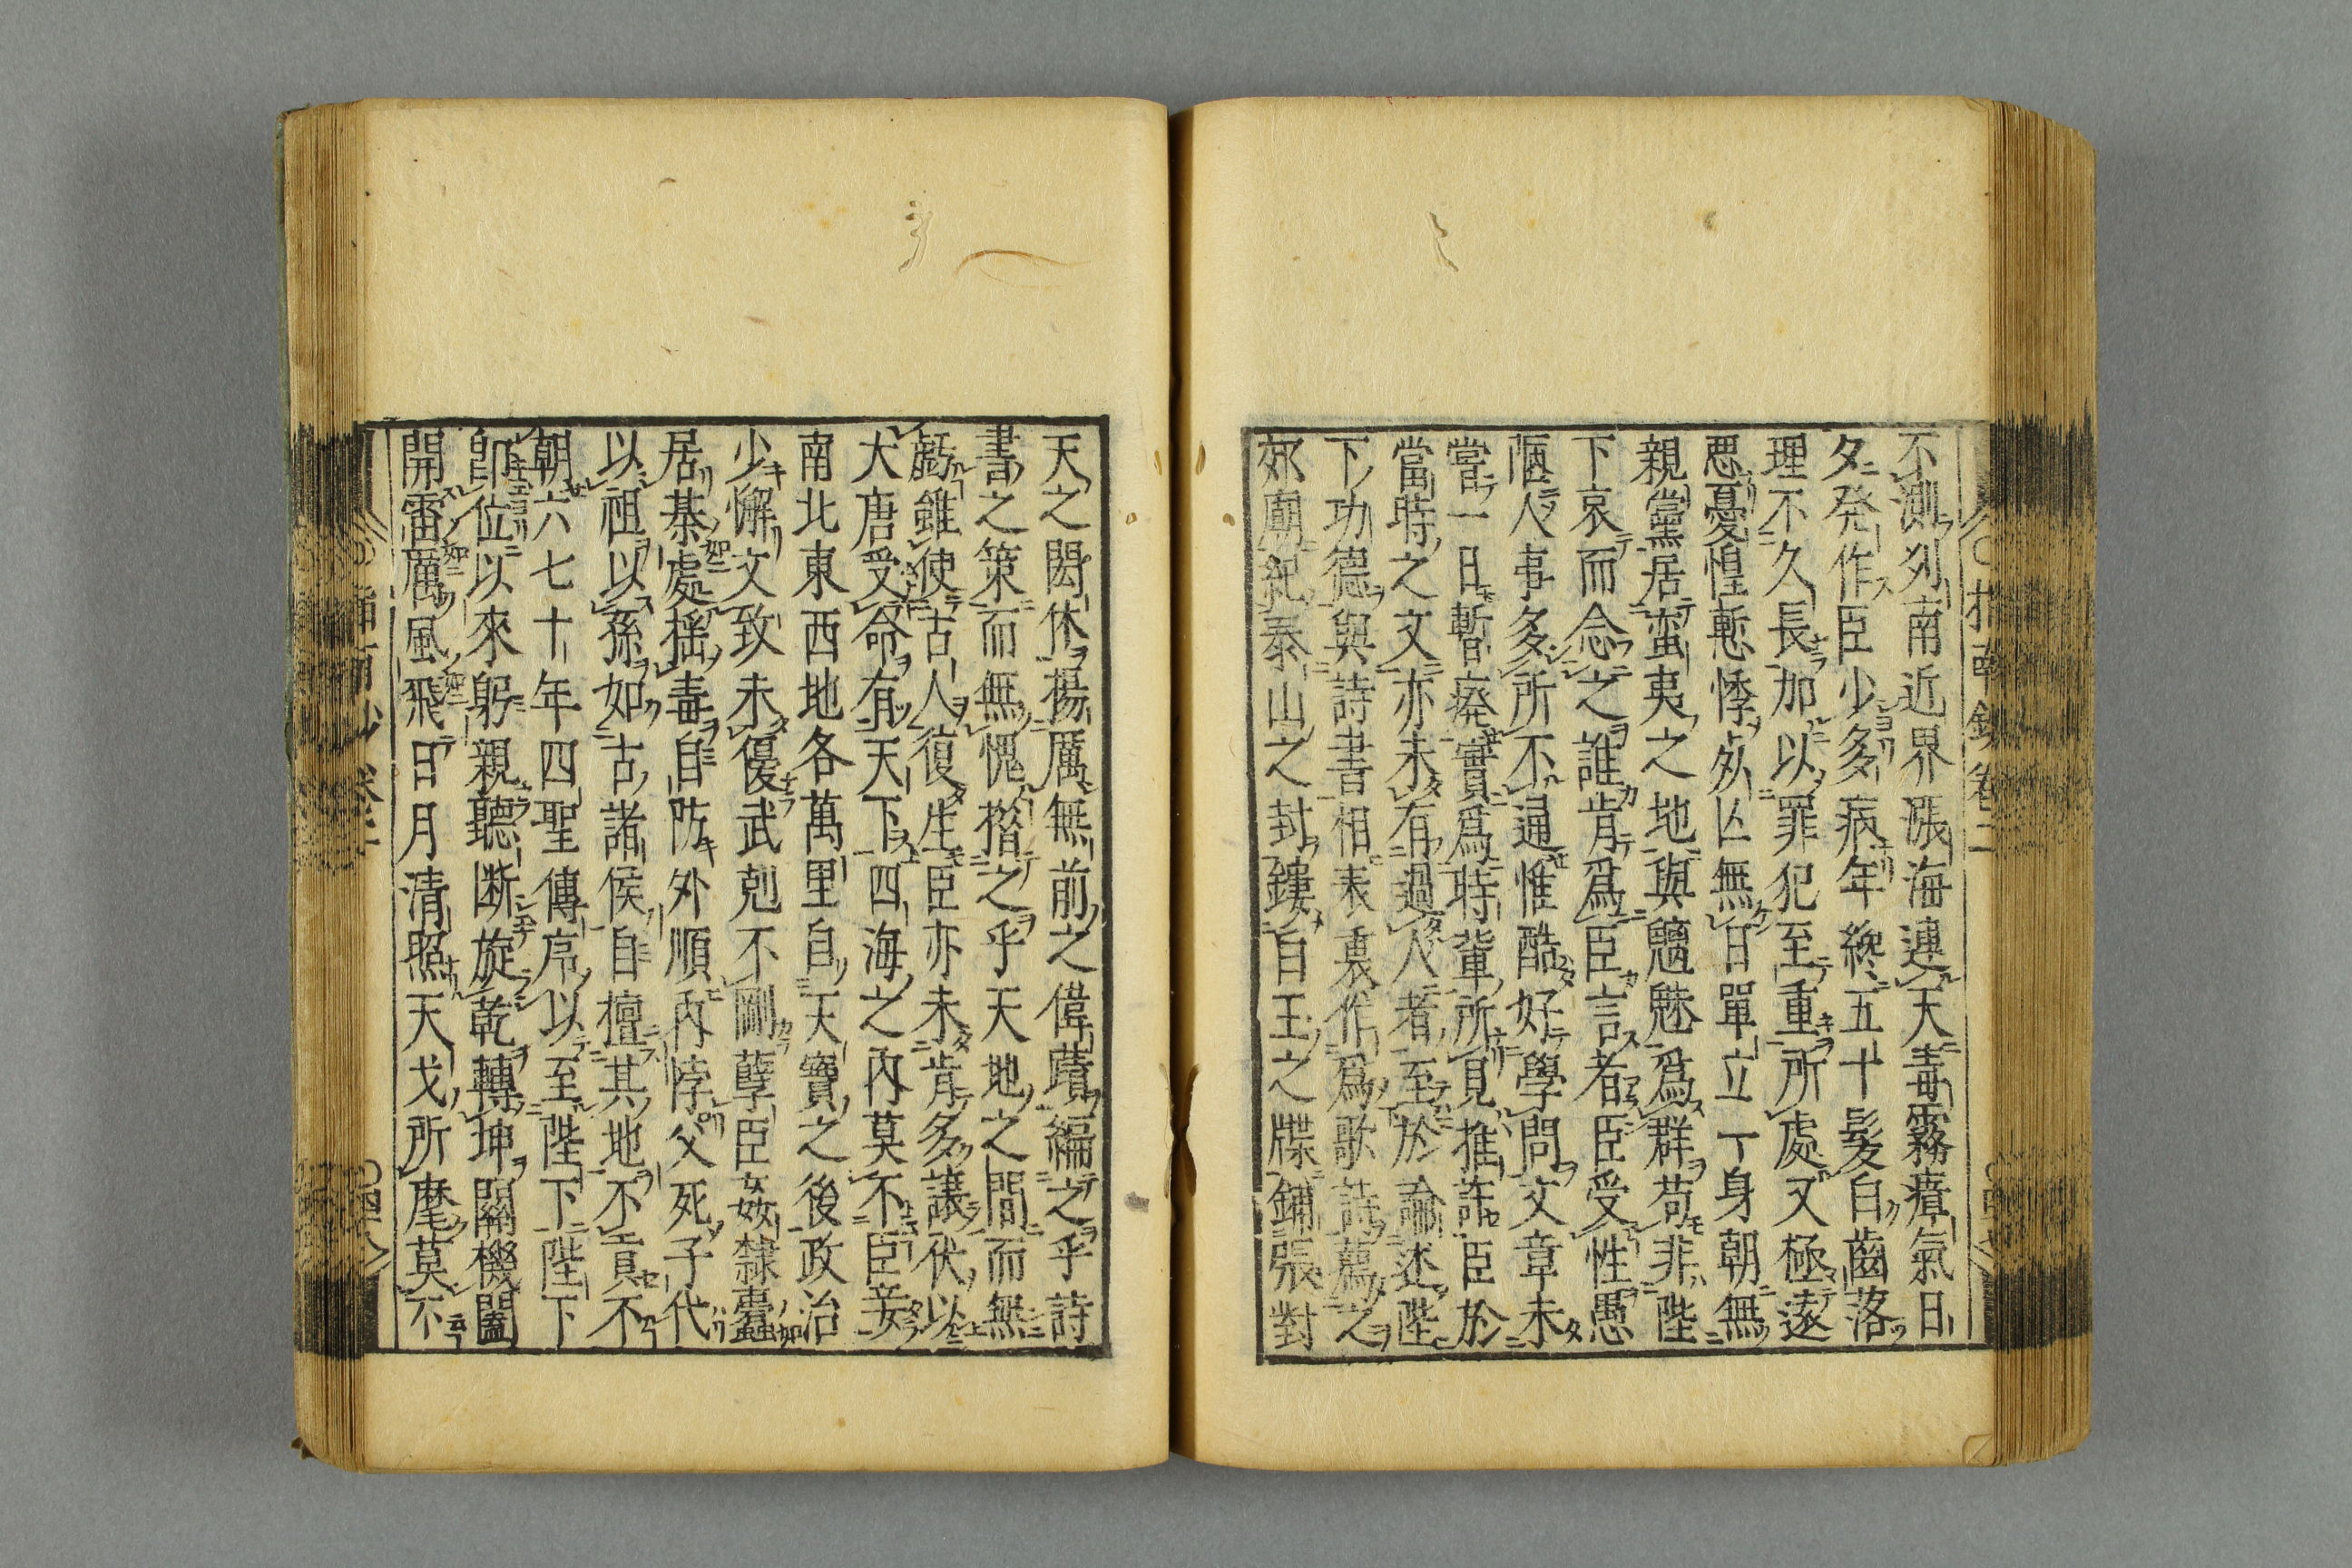 不測列南近界漲海連天毒霧瘴氣日
夕発作臣少多病年纔五十髪白齒落
理不久長加以罪犯至重所處又極遠
悪憂惶慙悸死亾無日單立一身朝無
親黨居蛮夷之地與魑魅爲群苟非陛
下哀而念之誰肯爲臣言者臣受性愚
陋人事多所不通惟酷好學問文章未
嘗一日暫廃實爲時輩所見推許臣於
當時之文亦未有過人者至於論述陛
下功德與詩書相表裏作爲歌詩薦之
郊廟紀泰山之封鏤白玉之牒鋪張對
天之閎休揚厲無前之偉蹟編之乎詩
書之策而無愧措之乎天地之間而無
虧雖使古人復生臣亦未肯多讓伏以
大唐受命有天下四海之内莫不臣妾
南北東西地各萬里自天寶之後政治
少懈文致未優武剋不剛孽臣姦隷蠹
居棊處揺毒自防外順内悖父死子代
以祖以孫如古諸侯自擅其地不貢不
朝六七十年四聖傳序以至陛下陛下
即位以來躬親聽断旋乾轉坤關機闔
開雷厲風飛日月清照天戈所麾莫不